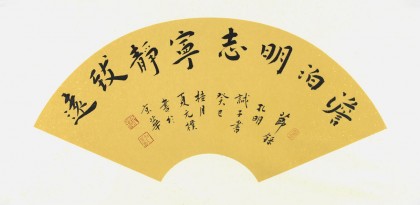 澹泊明志寧靜致遠
節錄
孔明
誡子書
癸巳
桂月
夏元
書於
京華